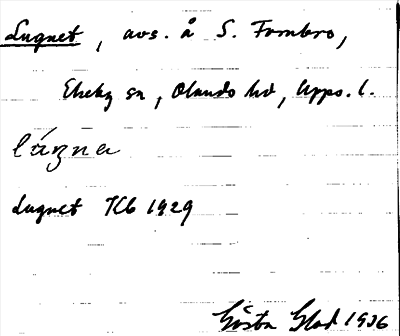 Lugnet, avs. å S. Fornbro,
Ekeby sn, Olands hd, Upps. l.
lúgna
Lugnet Kb 1929
Gösta Glad 1936